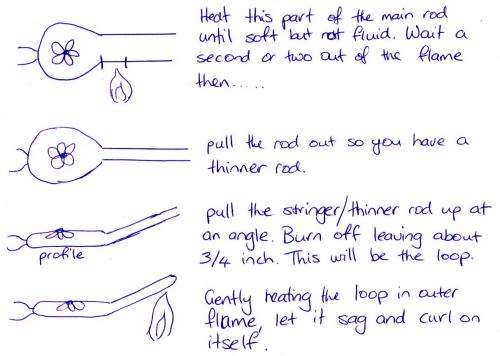 Heat this part of the main rod
until soft but not fluid. Wait a
second or two out of the flame
then......
pull the rod out so you have a
thinner rod.
pull the stringer/thinner rod up at
an angle. Burn off leaving about
3/4 inch. This will be the loop.
profile
Gently heating the loop in outer
flame, let it sag and curl on
itself.